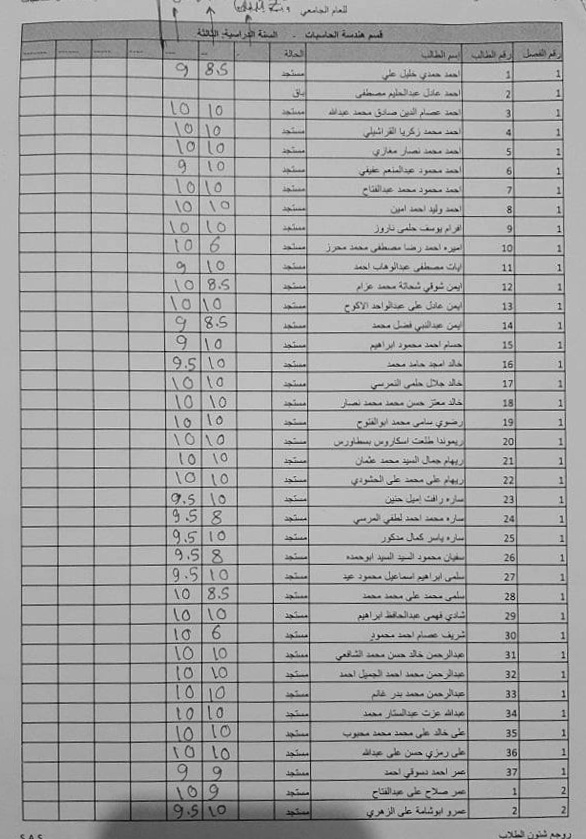 للعام الجامعي
قسم هندسة الحاسبات - السنة الدراسية: الثالثة
رقم الفصل رقم الطالب إسم الطالب الحالة
1 1 احمد حمدي خليل علي مستجد 8.5 9
1 2 احمد عادل عبدالحليم مصطفى باق
1 3 احمد عصام الدين صادق محمد عبدالله مستجد 10 10
1 4 احمد محمد زكريا القراشيلي مستجد 10 10
1 5 احمد محمد نصار مغازي مستجد 10 10
1 6 احمد محمود عبدالمنعم عفيفي مستجد 10 9
1 7 احمد محمود محمد عبدالفتاح مستجد 10 10
1 8 احمد وليد احمد امين مستجد 10 10
1 9 افرام يوسف حلمى ناروز مستجد 10 10
1 10 اميره احمد رضا مصطفى محمد محرز مستجد 6 10
1 11 ايات مصطفى عبدالوهاب احمد مستجد 10 9
1 12 ايمن شوقي شحاتة محمد عزام مستجد 8.5 10
1 13 ايمن عادل على عبدالواحد الاكوح مستجد 10 10
1 14 ايمن عبدالنبي فضل محمد مستجد 8.5 9
1 15 حسام احمد محمود ابراهيم مستجد 10 9
1 16 خالد امجد حامد محمد مستجد 10 9.5
1 17 خالد جلال حلمى النمرسي مستجد 10 10
1 18 خالد معتز حسن محمد محمد نصار مستجد 10 10
1 19 رضوي سامى محمد ابوالفتوح مستجد 10 10
1 20 ريموندا طلعت اسكاروس بسطاورس مستجد 10 10
1 21 ريهام جمال السيد محمد عثمان مستجد 10 10
1 22 ريهام على محمد على الحشودي مستجد 10 10
1 23 ساره رافت إميل حنين مستجد 10 9.5
1 24 ساره محمد احمد لطفي المرسي مستجد 8 9.5
1 25 ساره ياسر كمال مدكور مستجد 10 9.5
1 26 سفيان محمود السيد السيد ابوحمده مستجد 8 9.5
1 27 سلمى ابراهيم اسماعيل محمود عيد مستجد 10 9.5
1 28 سلمى محمد على محمد محمد مستجد 8.5 10
1 29 شادي فهمى عبدالحافظ ابراهيم مستجد 10 10
1 30 شريف عصام احمد محمود مستجد 6 10
1 31 عبدالرحمن خالد حسن محمد الشافعي مستجد 10 10
1 32 عبدالرحمن محمد احمد الجميل احمد مستجد 10 10
1 33 عبدالرحمن محمد بدر غانم مستجد 10 10
1 34 عبدالله عزت عبدالستار محمد مستجد 10 10
1 35 على خالد على محمد محمد محبوب مستجد 10 10
1 36 على رمزي حسن على عبدالله مستجد 10 10
1 37 عمر احمد دسوقي احمد مستجد 9 9
2 1 عمر صلاح على عبدالفتاح مستجد 9 10
2 2 عمرو ابوشامة على الزهري مستجد 10 9.5
روجع شئون الطلاب S.A.S